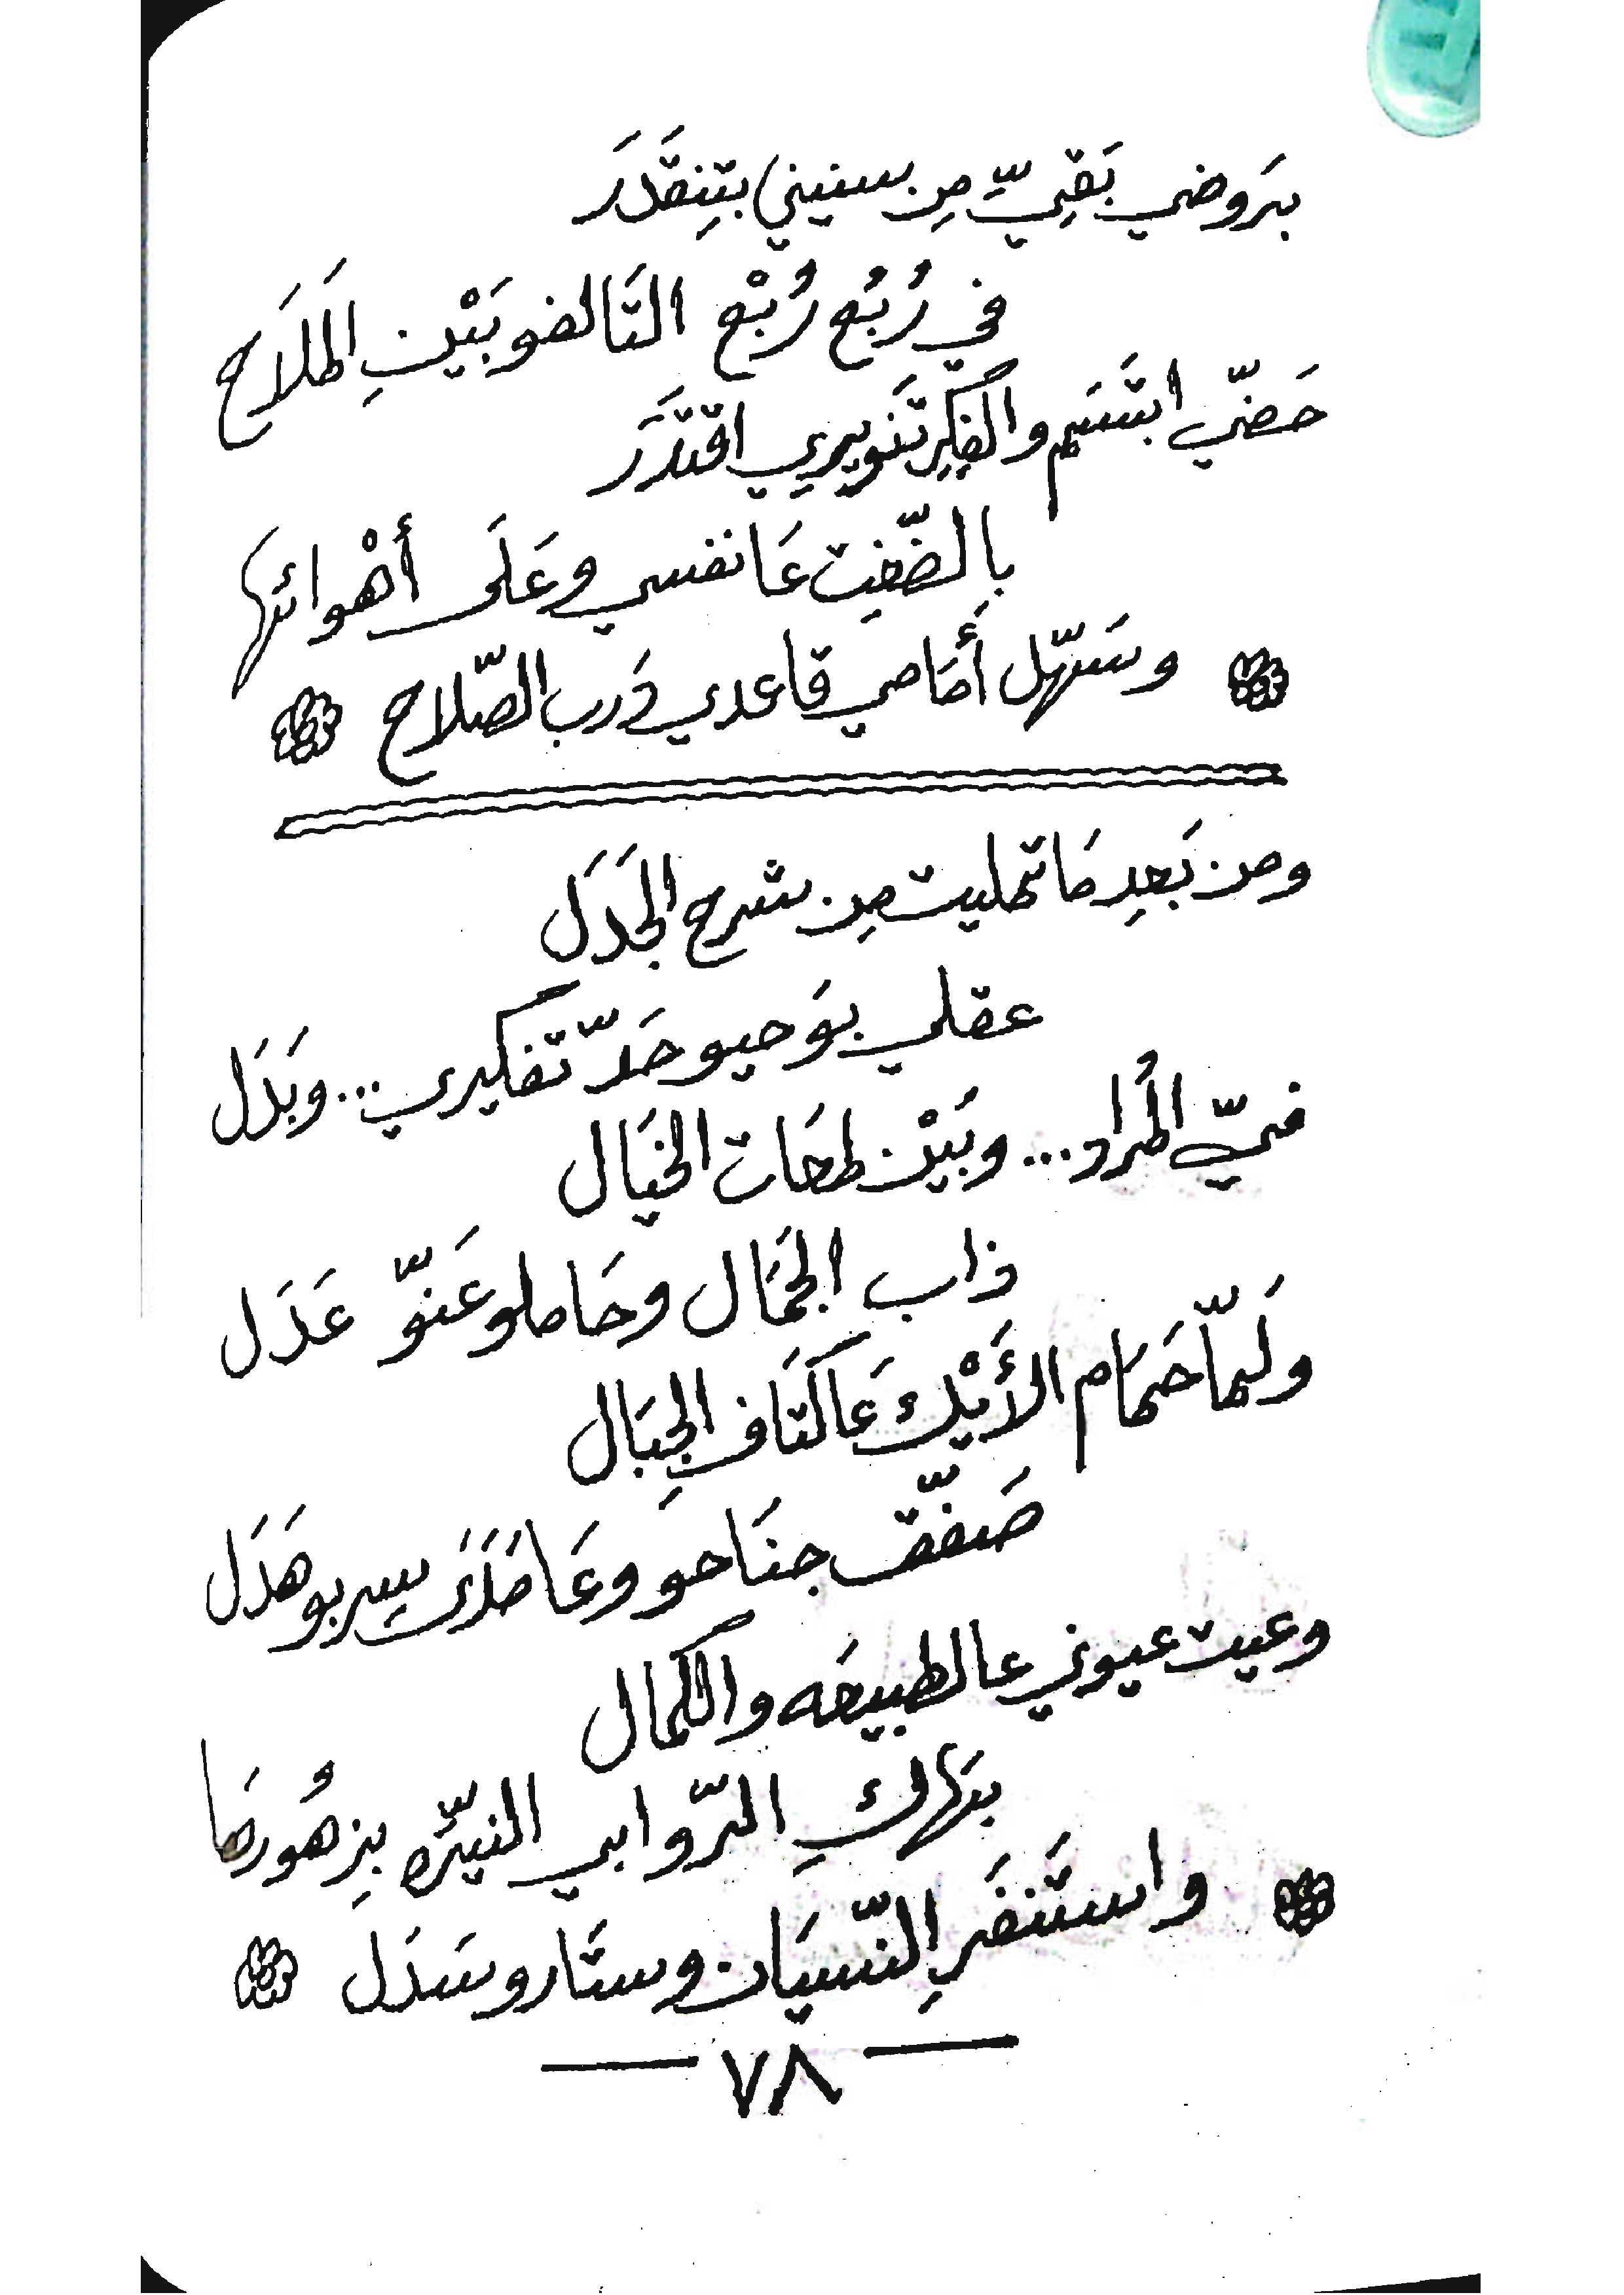 برَوضي بَقِيّ مِن سنيني بتِنقَدَرَ
في رُبُع رُبْع التَالضو بَيْنِ المَلَاح
حَضّي ابتَسَم والفِكِر تَنويرِي اقتدَرَ
بالضّغِت عَا نفسي وعَلَى أهْوائها
وسَهّل أمَامي قاعدي دَرب الصّلاح
ومن بَعدِ مَا تمليت مِن شرح الجَدَل
عقلي بوَحيو حَدّ تفكيري... وبَدَل
فيّ المُراد... وبَيْن لمحَات الخيَال
ذاب الجمَال وحَاملو عَنوّ عَدَل
ولَمّا حمَام الأَيْك عَا كتَافِ الجبَال
صَفّق جنَاحو وعَا مَدَى سِربو هَدَل
وعيت عيوني عالطبيعَه والكمال
بهَاكِ الرّوابي النيّره بِزهُورهَا
واستَنفَرِ النّسيَان وستَارو سَدَل
— ٧٨ —